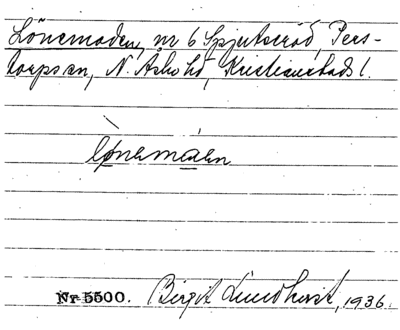 Lönemaden, nr 6 Spjutseröd, Pers-
torps sn, N. Åsbo hd, Kristianstads l.
lønemaden
Nr 5500. Birgit Lundhurst, 1936.